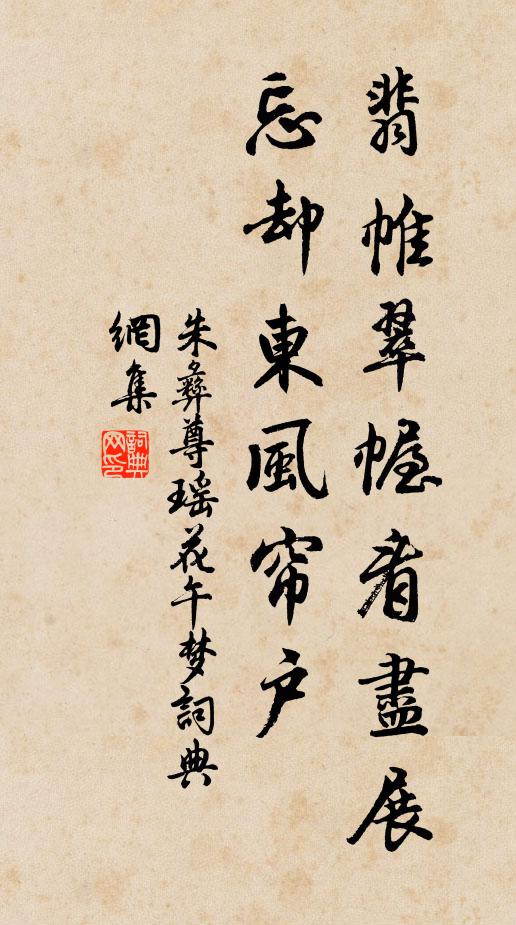 翡帷翠幄看盡展
忘却東風帘户
朱彝尊瑶花午梦詞典
網集
詞典网印